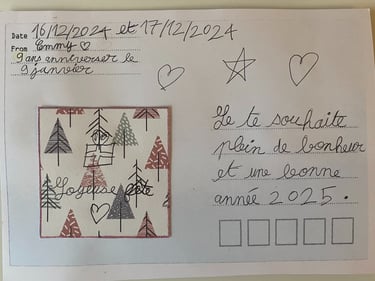 Date 16/12/2024 et 17/12/2024
From Emmy
9 ans anniverser le
9 janvier
Joyeuse fête
Je te souhaite
plein de bonheur
et une bonne
année 2025.